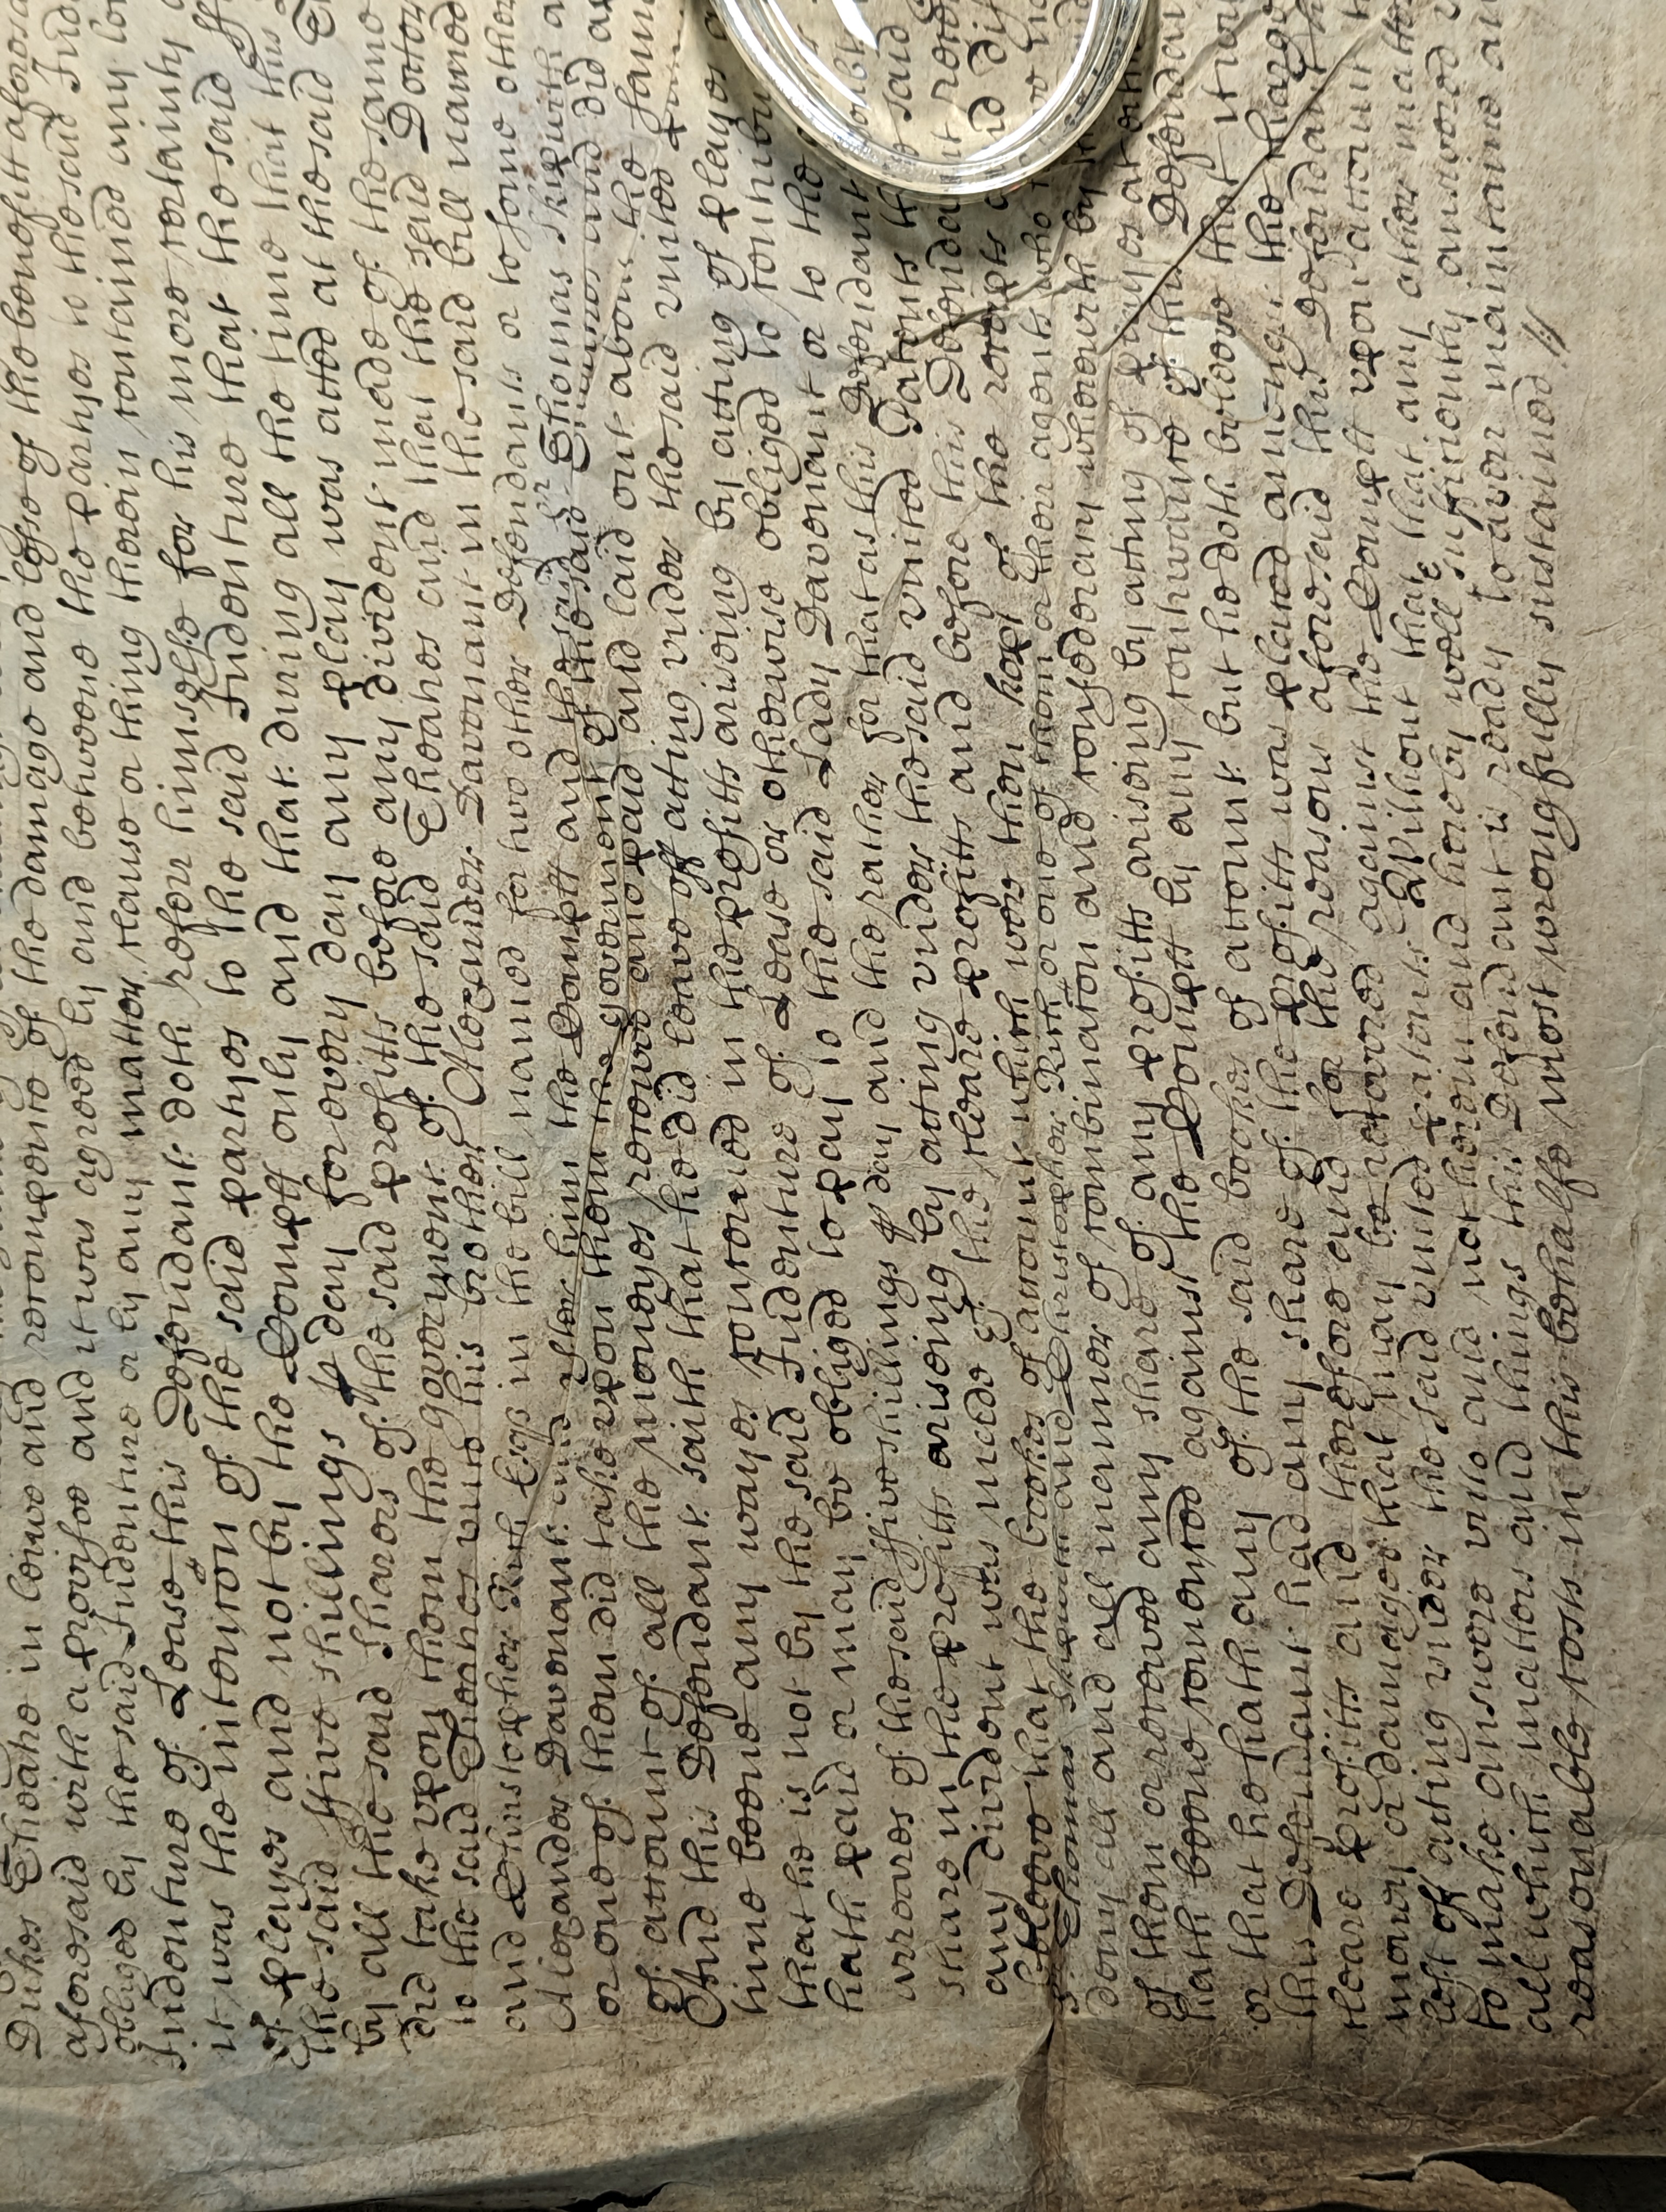 Dukes Theatre in leiwe and recompence of the damage and losse of the benefitt aforesa
aforesaid with a provisoe and it was agreed by and betweene the partyes to the said Ind
obliged by the said Indenture or by any matter clause or thing therein contained any
Indenture of Lease this Defendant doth refer himselfe for his more certainty
it was the intencon of the said partyes to the said Indenture that the said
of playes and not by the Compt only and that during all the time that this
the said ffive shillings p day for every day any play was acted at the said
by all the said sharers of the said profitts before any divident made of the same
did take vpon them the government of the said Theatre and that the said Doctor
to the said Theatre vnto his brother Alexander Davenant in the said bill named
and Christopher Rich Esqr in the bill named for two other Defendants or to some other
Alexander Davenant and after him the Compt and the said Sr Thomas Skipwith
or one of them did take vpon them the government of the said Theatre and did
of account of all the moneyes receivd and paid and laid out about the same
And this Defendant saith that he did leave off acting vnder the said vnited
time beene any wayes concerned in the profitts arising by acting of playes
that he is not by the said Indenture of Lease or otherwise obliged to contribu
hath paid or may be obliged to pay to the said Lady Davenant or to the
arreares of the said ffive shillings p day and the rather for that as this Defendant
share in the profitts ariseing by acting vnder the said vnited Patents the said
any divident was made of the cleare profitts and before this Defendant
beleeve that the bookes of account which were then kept of the receipts and
Sr Thomas Skipwith and Christopher Rich or one of them or their agents who
deny all and all manner of combinacon and confederacy wherewith by
of them or received any share of any profitts ariseing by acting of playes
hath beene concerned against the Compt by any contrivance of this Defendan
or that he hath any of the said bookes of account but he doth beleeve that
this Defendant had any share of the profitts was placed amongst the charge
cleare profitts and therefore and for the reasons aforesaid this Defendant
money or damaged that may be recovered against the Compt vpon account
left of acting vnder the said vnited patents Without that that any other matter
to make answere vnto and not herein and hereby well sufficiently answered
all which matters and things this Defendant is ready to averr maintaine an
reasonable costs in this behalfe most wrongfully sustained //